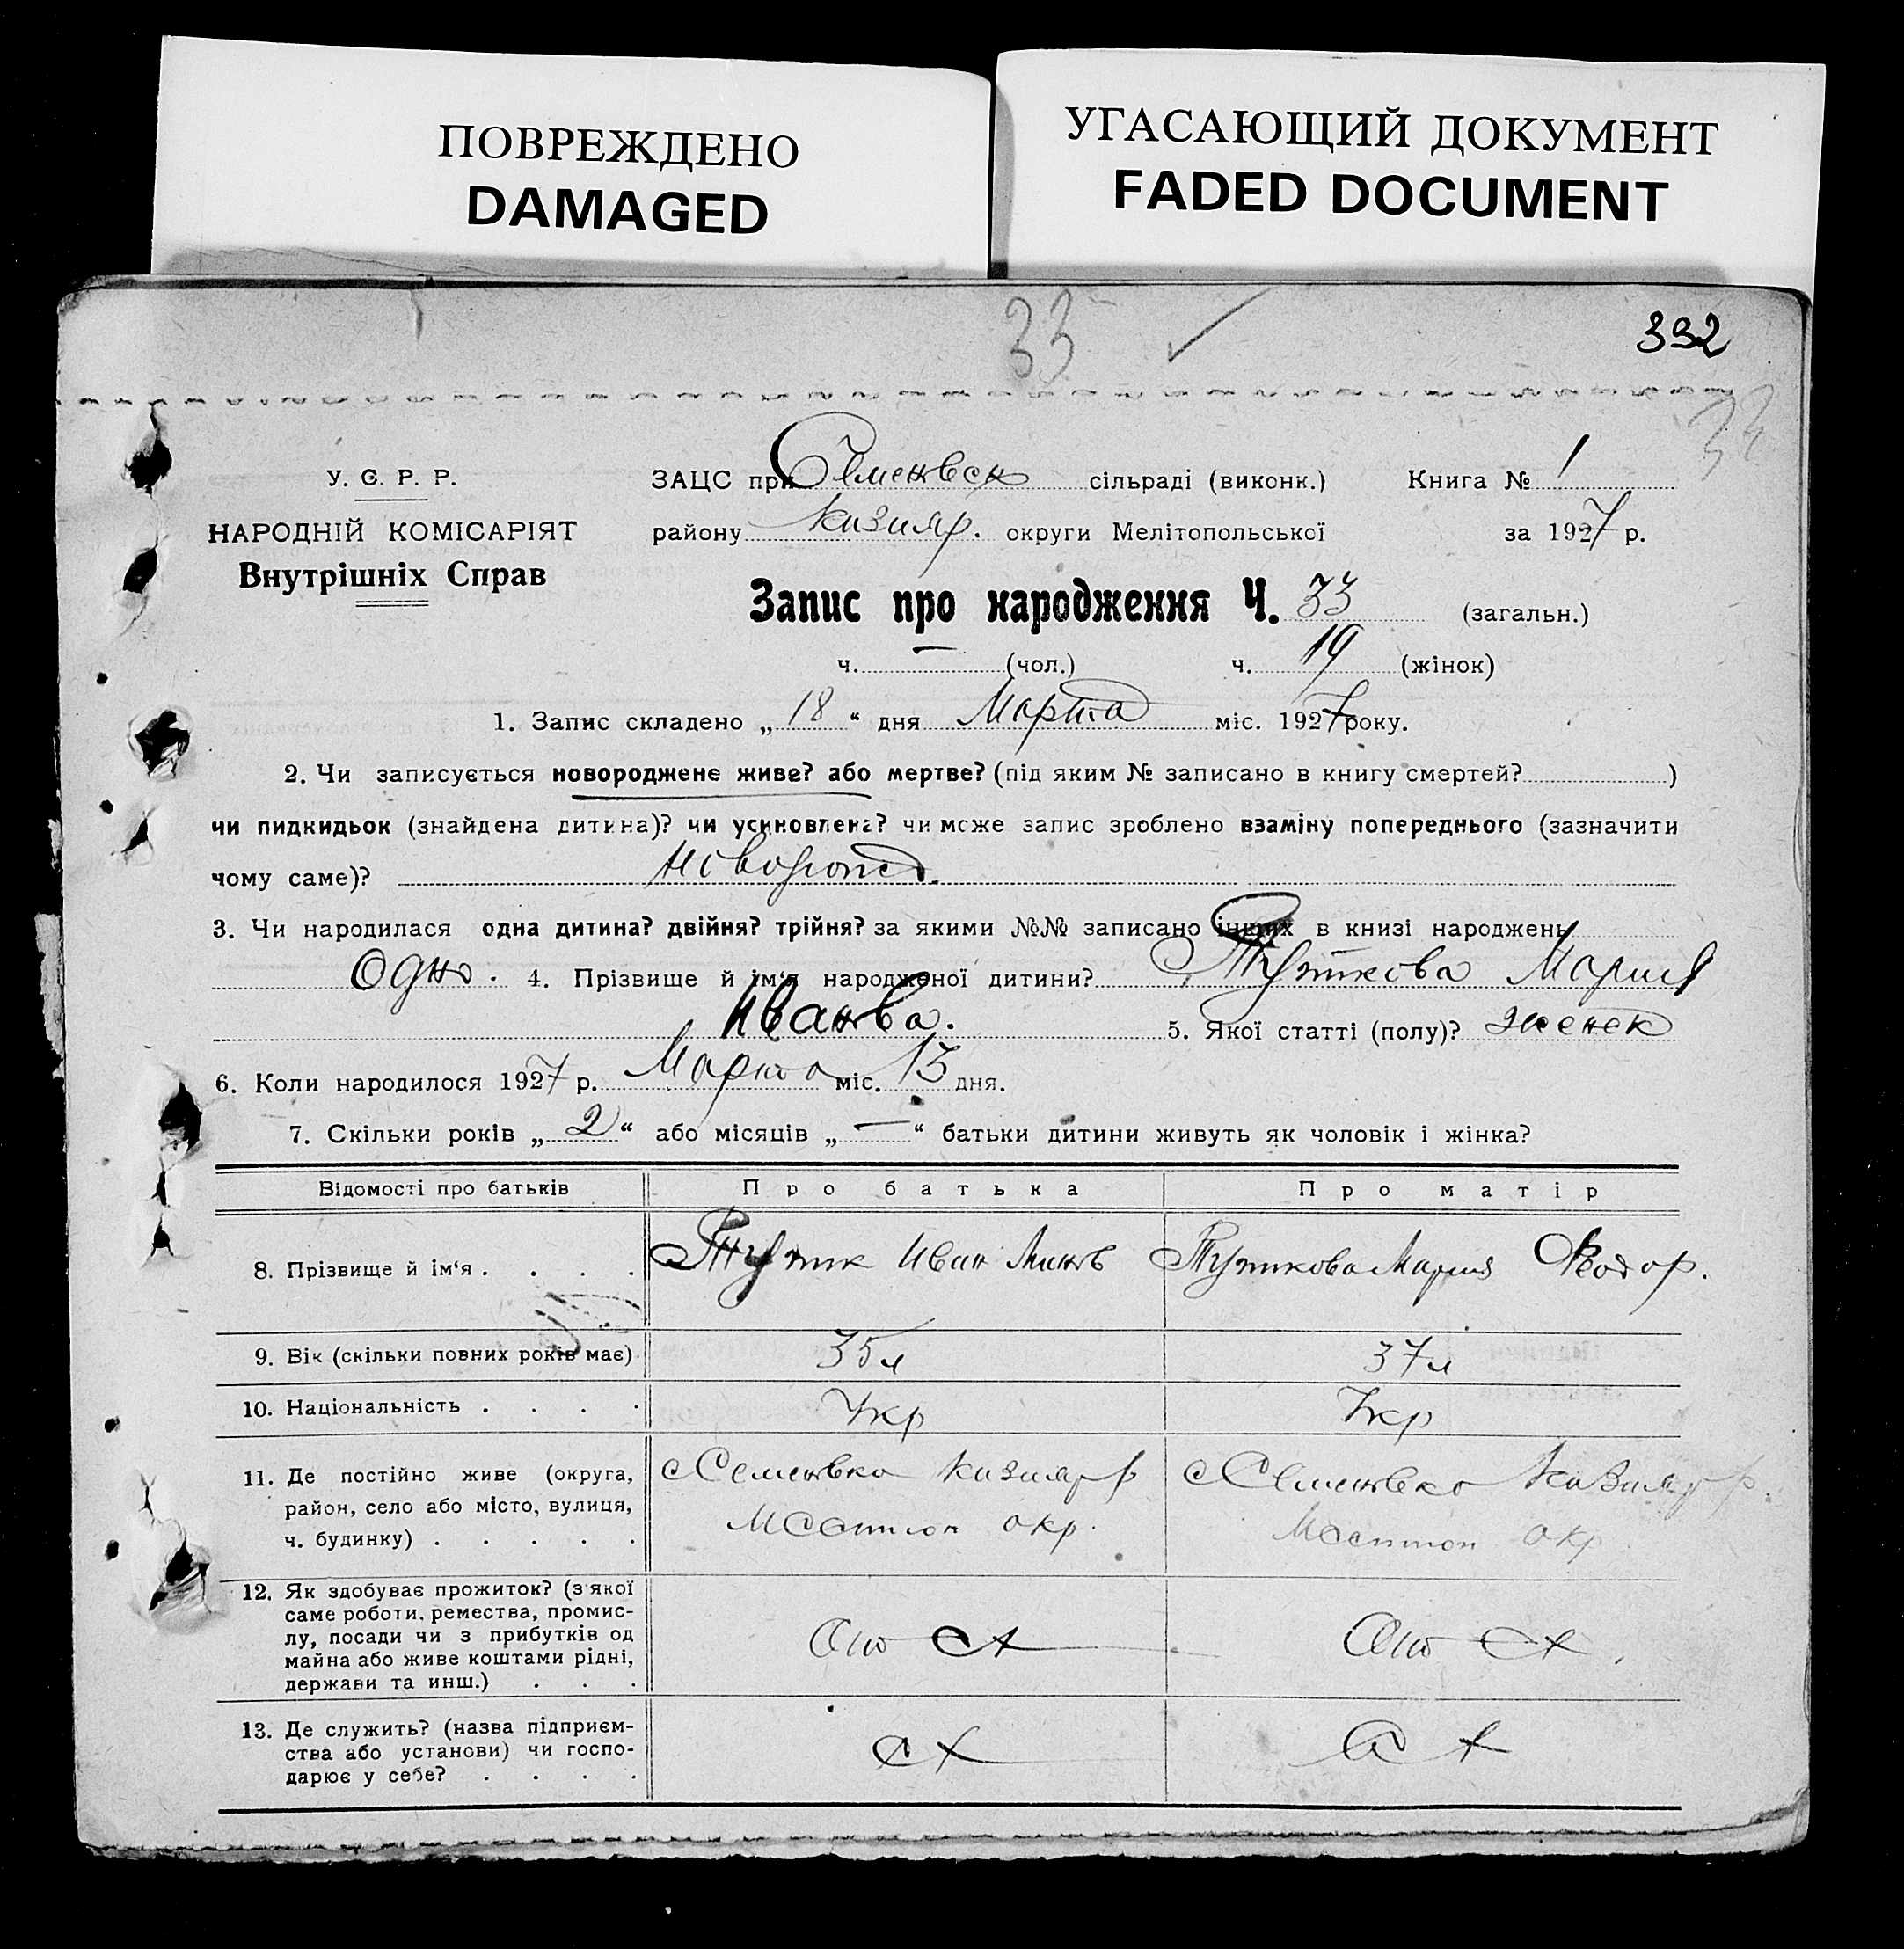 ПОВРЕЖДЕНО
DAMAGED
УГАСАЮЩИЙ ДОКУМЕНТ
FADED DOCUMENT
33
392
У. С. Р. Р.
НАРОДНІЙ КОМІСАРІЯТ
Внутрішніх Справ
ЗАЦС при Семенвск сільраді (виконк.) Книга № 1
району Кизияр. округи Мелітопольської за 1927 р.
Запис про народження Ч. 33 (загальн.)
ч. — (чол.) ч. 19 (жінок)
1. Запис складено „ 18 “ дня Марта міс. 1927 року.
2. Чи записується новороджене живе? або мертве? (під яким № записано в книгу смертей? )
чи пидкидьок (знайдена дитина)? чи усиновлена? чи може запис зроблено взаміну попереднього (зазначити
чому саме)?
3. Чи народилася одна дитина? двійня? трійня? за якими №№ записано інших в книзі народжень
Одно. 4. Прізвище й ім‘я народженої дитини? Мария
5. Якої статті (полу)? женск
6. Коли народилося 1927 р. Марта міс. 13 дня.
7. Скільки років „ 2 “ або місяців „ — “ батьки дитини живуть як чоловік і жінка?
Відомості про батьків Про батька Про матір
8. Прізвище й ім‘я . . . . Иван Мария Феодор.
9. Вік (скільки повних років має) 35 л 37 л
10. Національність . . . . Укр Укр
11. Де постійно живе (округа,
район, село або місто, вулиця,
ч. будинку) . . . . .
с Семенвка Кизияр р
окр.
с Семенвка Кизияр р.
окр
12. Як здобуває прожиток? (з якої
саме роботи, ремества, промис-
лу, посади чи з прибутків од
майна або живе коштами рідні,
держави та инш.) . . .
От СХ
От СХ
13. Де служить? (назва підприєм-
ства або установи) чи госпо-
дарює у себе? . . . .
СХ
СХ